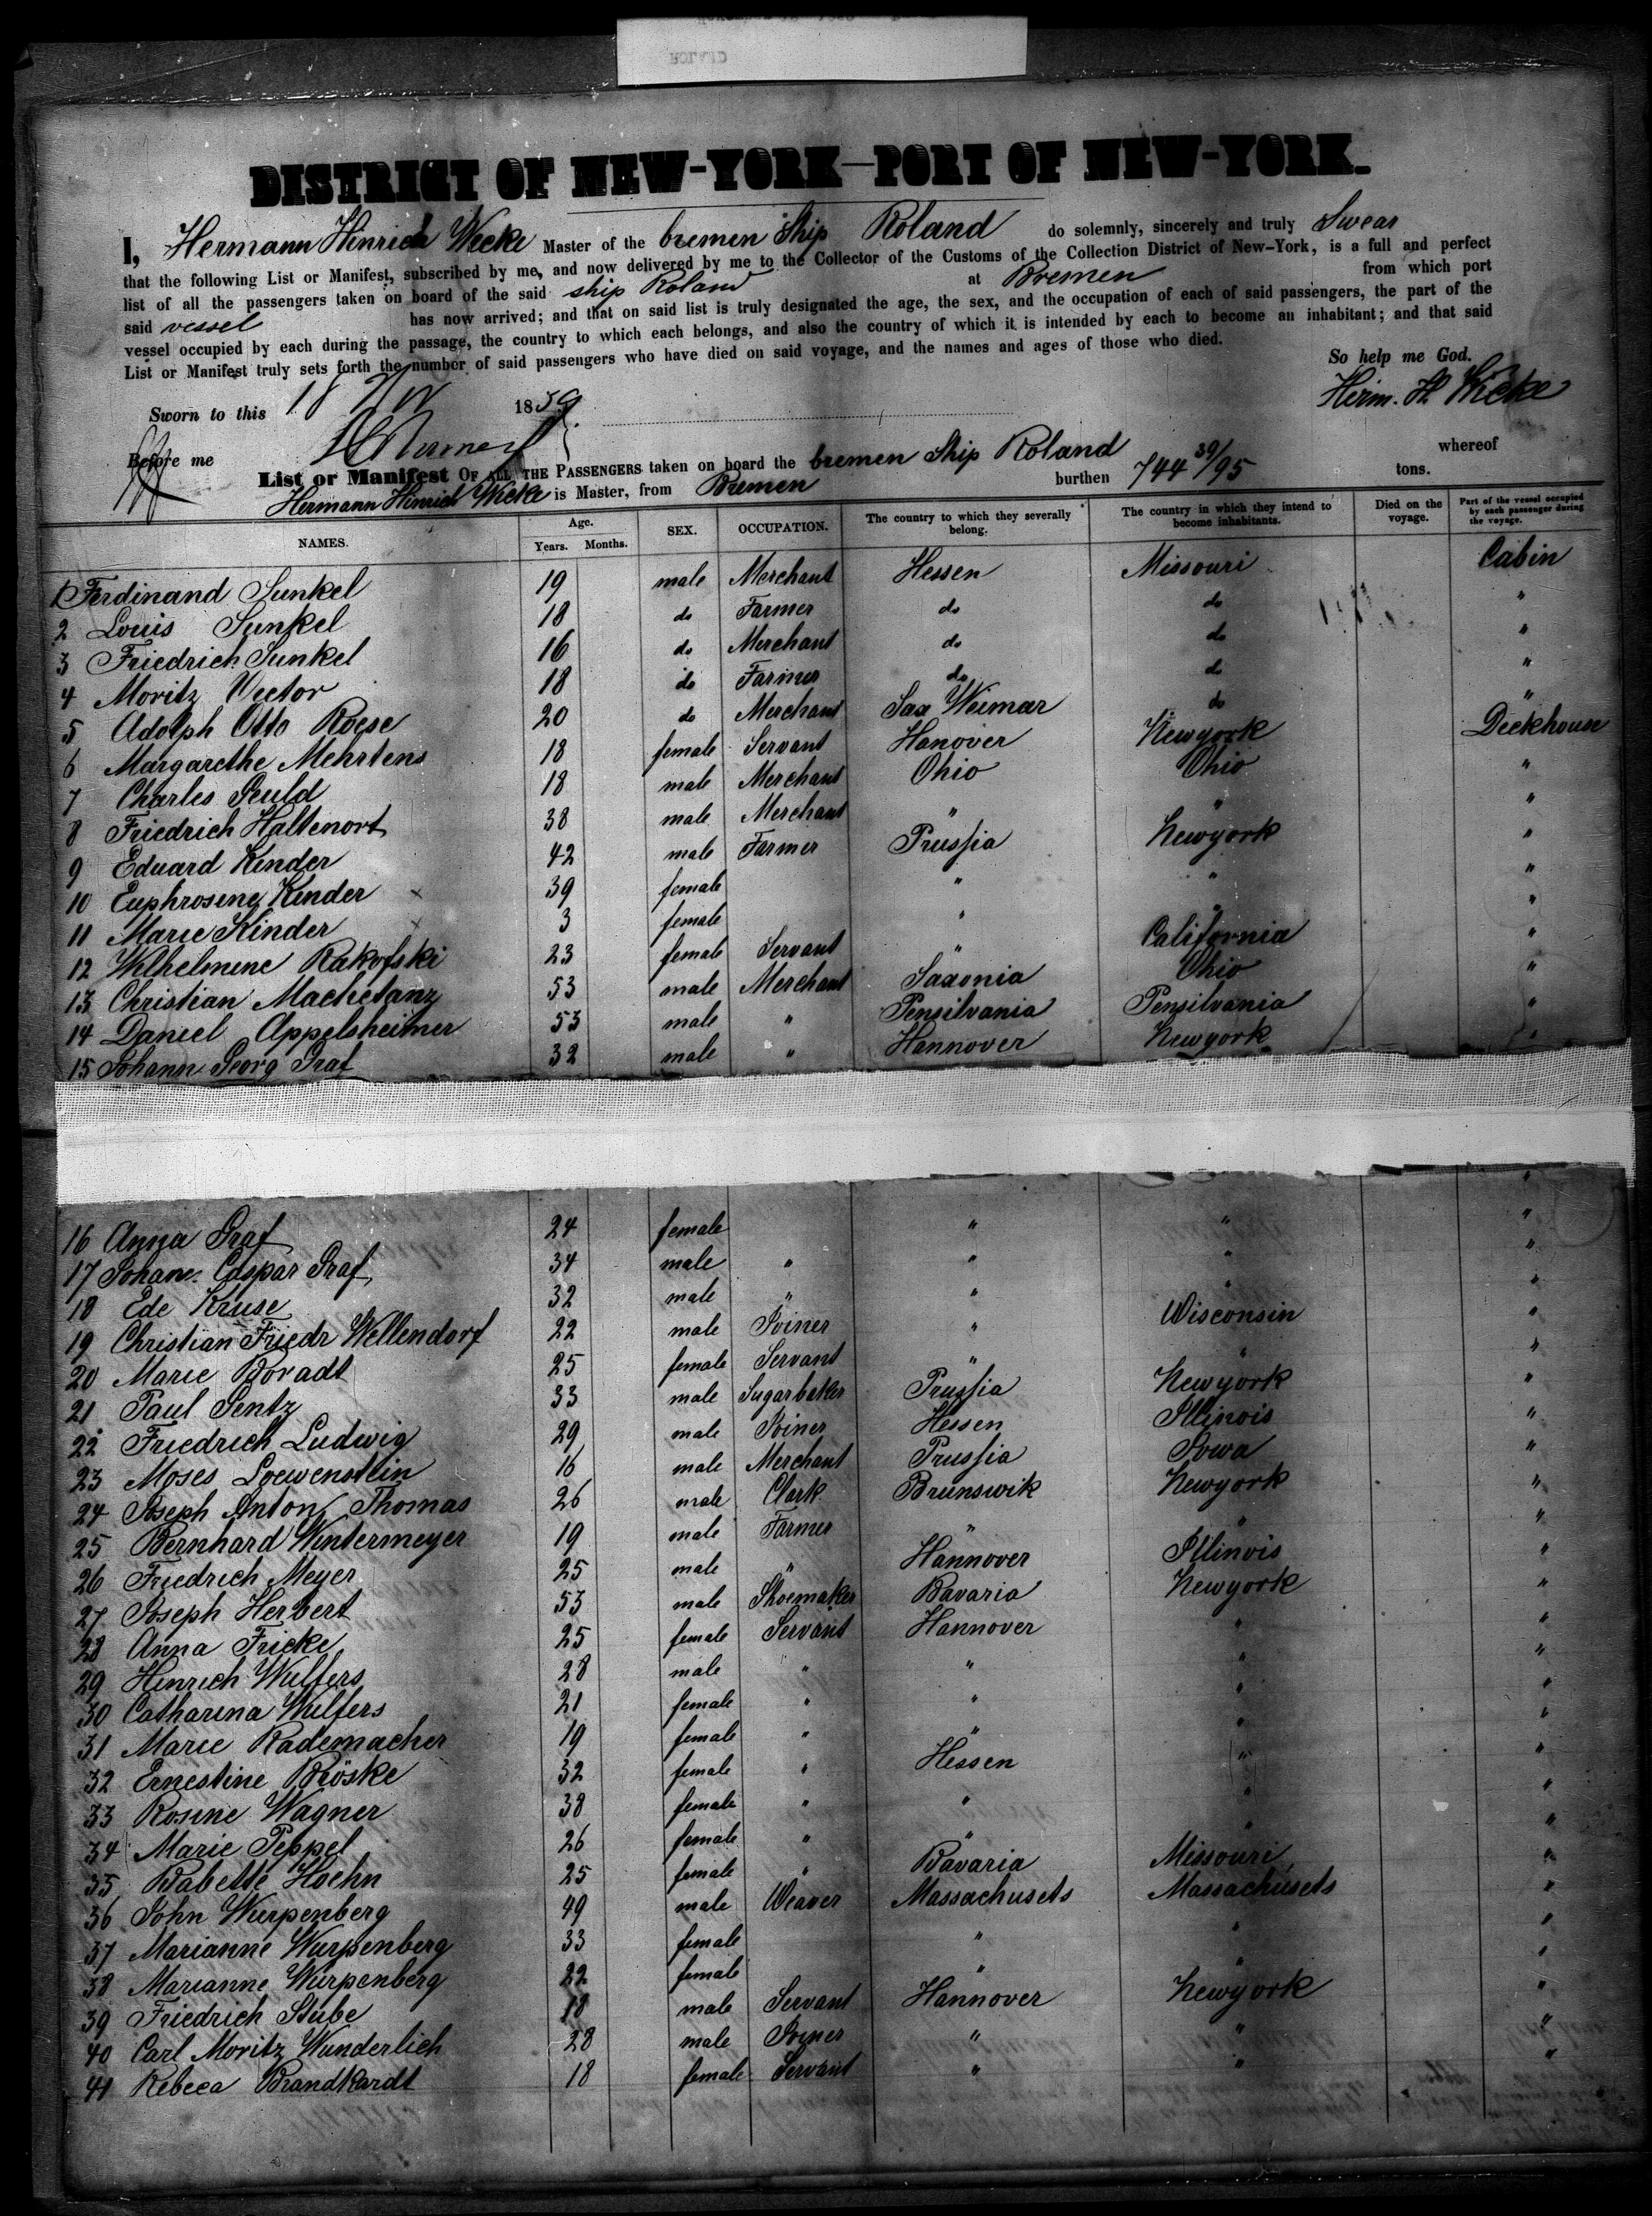 DISTRICT OF NEW-YORK—PORT OF NEW-YORK.
I, Hermann Hinrich Wicke Master of the bremen Ship Roland do solemnly, sincerely and truly Swear
that the following List or Manifest, subscribed by me, and now delivered by me to the Collector of the Customs of the Collection District of New-York, is a full and perfect
list of all the passengers taken on board of the said ship Roland at Bremen from which port
said vessel has now arrived; and that on said list is truly designated the age, the sex, and the occupation of each of said passengers, the part of the
vessel occupied by each during the passage, the country to which each belongs, and also the country of which it is intended by each to become an inhabitant; and that said
List or Manifest truly sets forth the number of said passengers who have died on said voyage, and the names and ages of those who died.
So help me God.
Sworn to this 18 Nov 1859 Herm. H. Wicke
Before me
List or Manifest OF ALL THE PASSENGERS taken on board the bremen Ship Roland whereof
Hermann Hinrich Wicke is Master, from Bremen burthen 744 39/95 tons.
NAMES. Age. Years. Months. SEX. OCCUPATION. The country to which they severally belong. The country in which they intend to become inhabitants. Died on the voyage. Part of the vessel occupied by each passenger during the voyage.
1 Ferdinand Sunkel 19 male Merchant Hessen Missouri Cabin
2 Louis Sunkel 18 do Farmer do do "
3 Friedrich Sunkel 16 do Merchant do do "
4 Moritz Vector 18 do Farmer do do "
5 Adolph Otto Roese 20 do Merchant Sax Weimar do "
6 Margarethe Mehrtens 18 female Servant Hanover Newyork Deckhouse
7 Charles Seuld 18 male Merchant Ohio Ohio "
8 Friedrich Haltenort 38 male Merchant " " "
9 Eduard Kinder 42 male Farmer Prussia Newyork "
10 Euphrosene Kinder 39 female " " "
11 Marie Kinder 3 female " " "
12 Wilhelmine Rakofski 23 female Servant " California "
13 Christian Machetanz 53 male Merchant Saxonia Ohio "
14 Daniel Appelsheimer 53 male " Pensilvania Pensilvania "
15 Johann Georg Graf 32 male " Hannover Newyork "
16 Anna Graf 24 female " " "
17 Johann Caspar Graf 34 male " " " "
18 Ede Kruse 32 male " " " "
19 Christian Friedr Wellendorf 22 male Joiner " Wisconsin "
20 Marie Boradt 25 female Servant " " "
21 Paul Sentz 33 male Sugarbaker Prussia Newyork "
22 Friedrich Ludwig 29 male Joiner Hessen Illinois "
23 Moses Loewenstein 16 male Merchant Prussia Iowa "
24 Joseph Anton Thomas 26 male Clark Brunswik Newyork "
25 Bernhard Wintermeyer 19 male Farmer " " "
26 Friedrich Meyer 25 male " Hannover Illinois "
27 Joseph Herbert 53 male Shoemaker Bavaria Newyork "
28 Anna Fricke 25 female Servant Hannover " "
29 Hinrich Wulfers 28 male " " " "
30 Catharina Wulfers 21 female " " " "
31 Marie Rademacher 19 female " " " "
32 Ernestine Röske 32 female " Hessen " "
33 Rosine Wagner 38 female " " " "
34 Marie Peppel 26 female " " " "
35 Babette Hoehn 25 female " Bavaria Missouri "
36 John Wurpenberg 49 male Weaver Massachusets Massachusets "
37 Marianne Wurpenberg 33 female " " "
38 Marianne Wurpenberg 22 female " " "
39 Friedrich Stube 18 male Servant Hannover Newyork "
40 Carl Moritz Wunderlich 28 male Joiner " " "
41 Rebeca Brandthardt 18 female Servant " " "